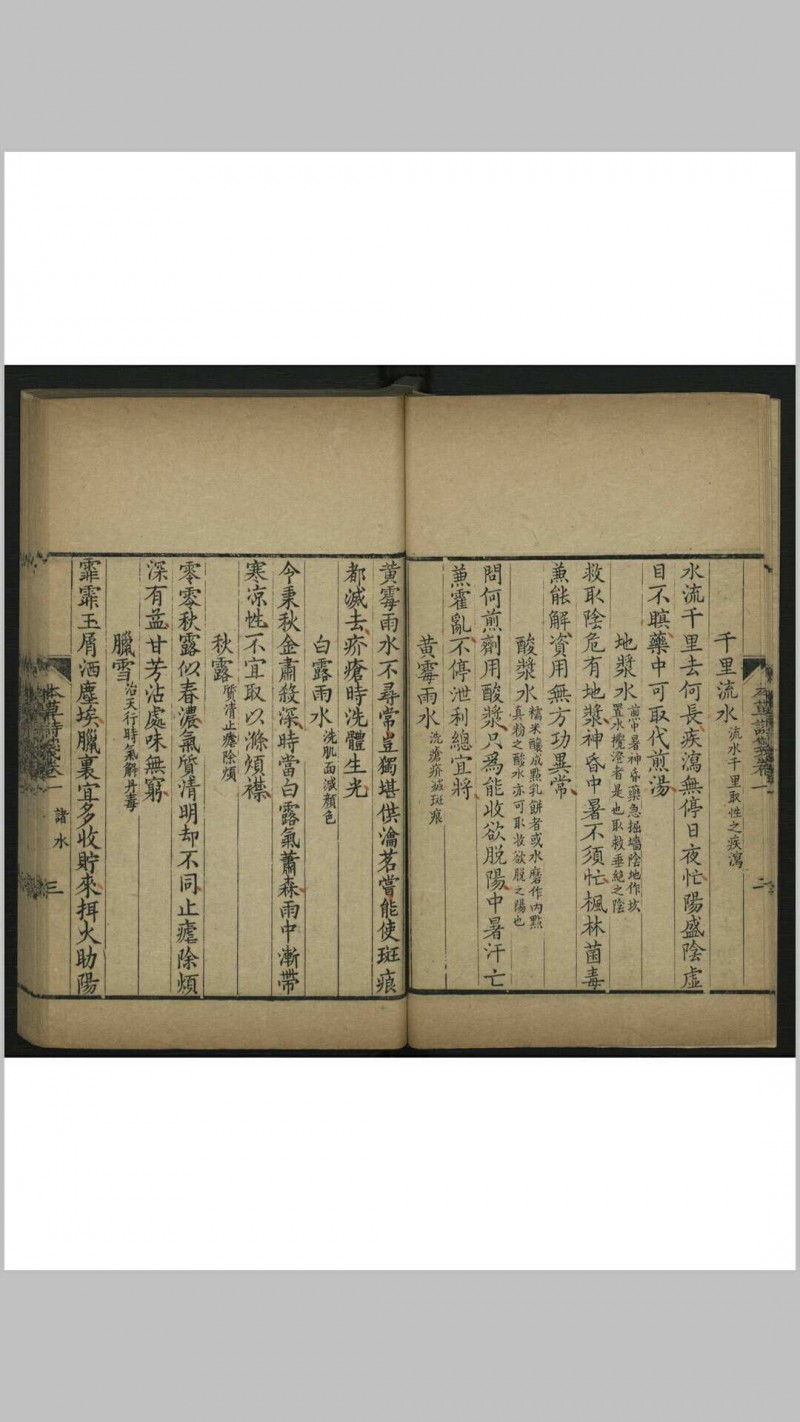 千里流水 流水千里取性之疾瀉
水流千里去何長疾瀉無停日夜忙陽盛陰虛
目不瞑藥中可取代煎湯
地漿水 煎中暑神昏藥急掘墻陰地作坎
置水攪澄者是也取救垂絕之陰
救取陰危有地漿神昏中暑不須忙楓林菌毒
兼能解資用無方功異常
酸漿水 糯米釀成㸃乳餅者或水磨作內㸃
真粉之酸水亦可取妝欲脫之陽也
問何煎劑用酸漿只為能收欲脫陽中暑汗亡
兼霍亂不停泄利總宜將
黃霉雨水 洗瘡疥滅斑痕
二
黃霉雨水不尋常豈獨堪供瀹茗嘗能使斑痕
都滅去疥瘡時洗體生光
白露雨水 洗肌面滅顏色
今秉秋金肅殺深時當白露氣蕭森雨中漸帶
寒凉性不宜取以滌煩襟
秋露 質清止瘧除煩
零零秋露似春濃氣質清明却不同止瘧除煩
深有益甘芳沾處味無窮
臘雪 治天行時氣解丹毒
霏霏玉屑洒塵埃臘裏宜多收貯來揖火助陽
本草詩箋卷一 諸水 三